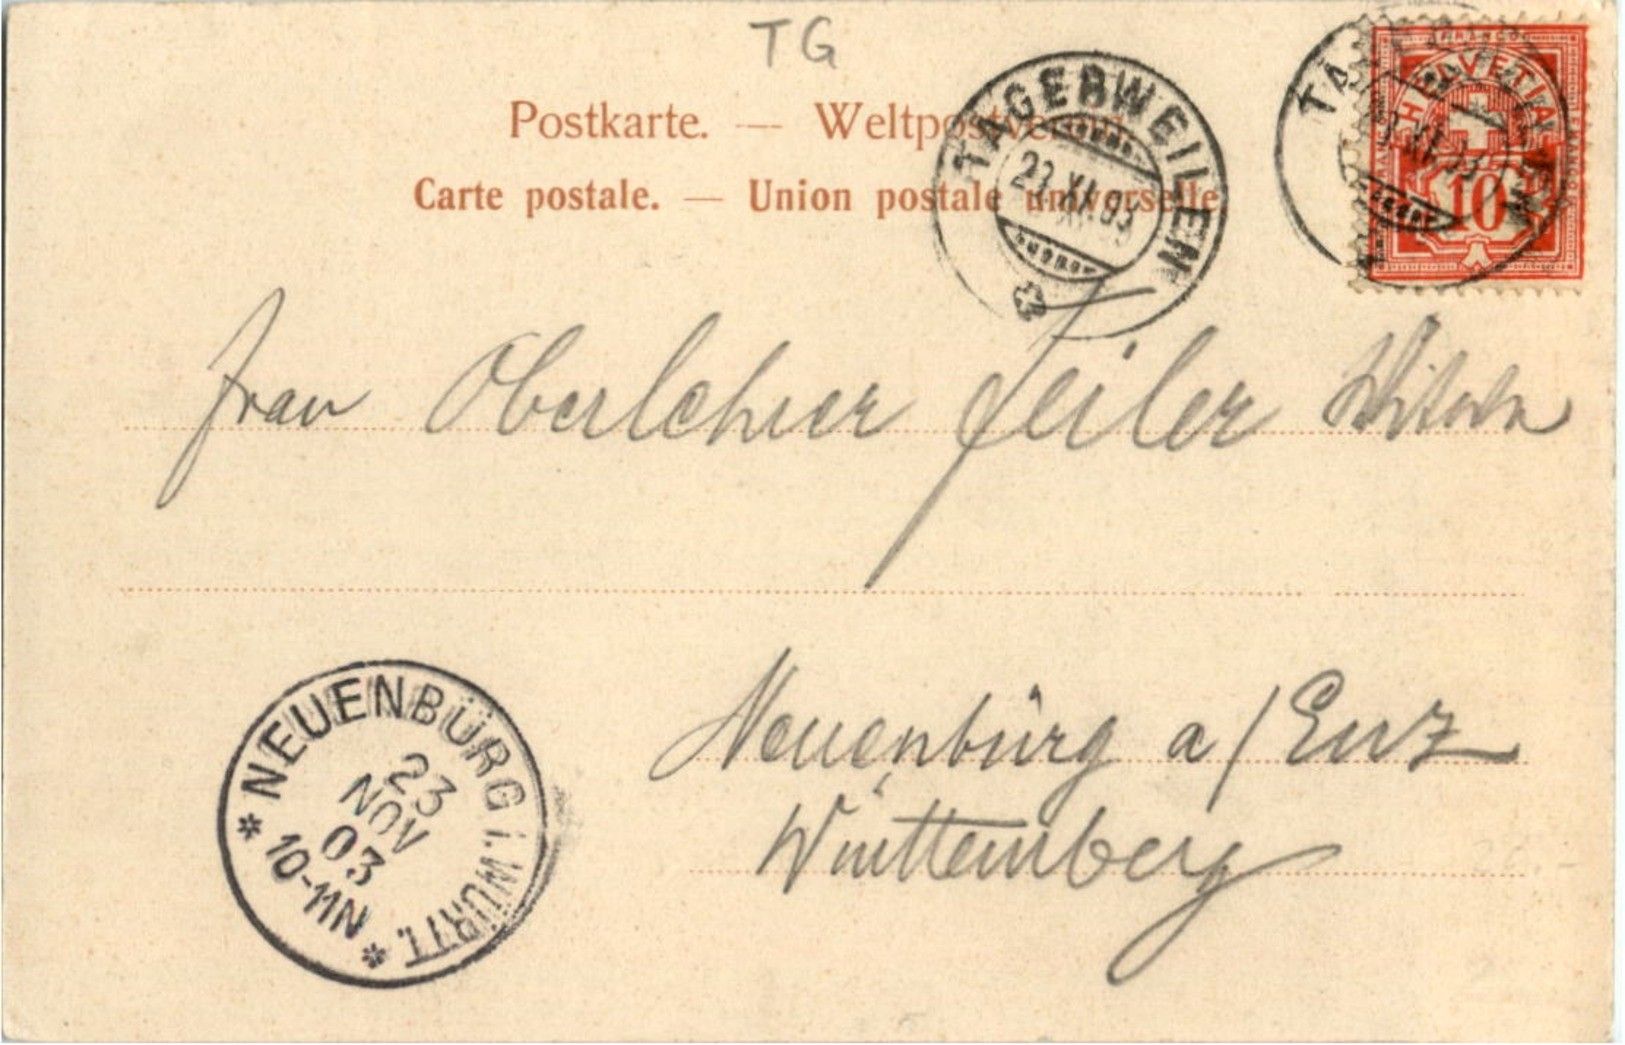 TG
Postkarte. — Weltpostverein.
Carte postale. — Union postale universelle
TÄGERWEILEN
23.XI.03
HELVETIA
10
FRANCO
Frau Oberlehrer Feiler Witwe
Neuenbürg a/Enz
Württemberg
NEUENBÜRG i. WÜRTT.
23
NOV
03
10-11N